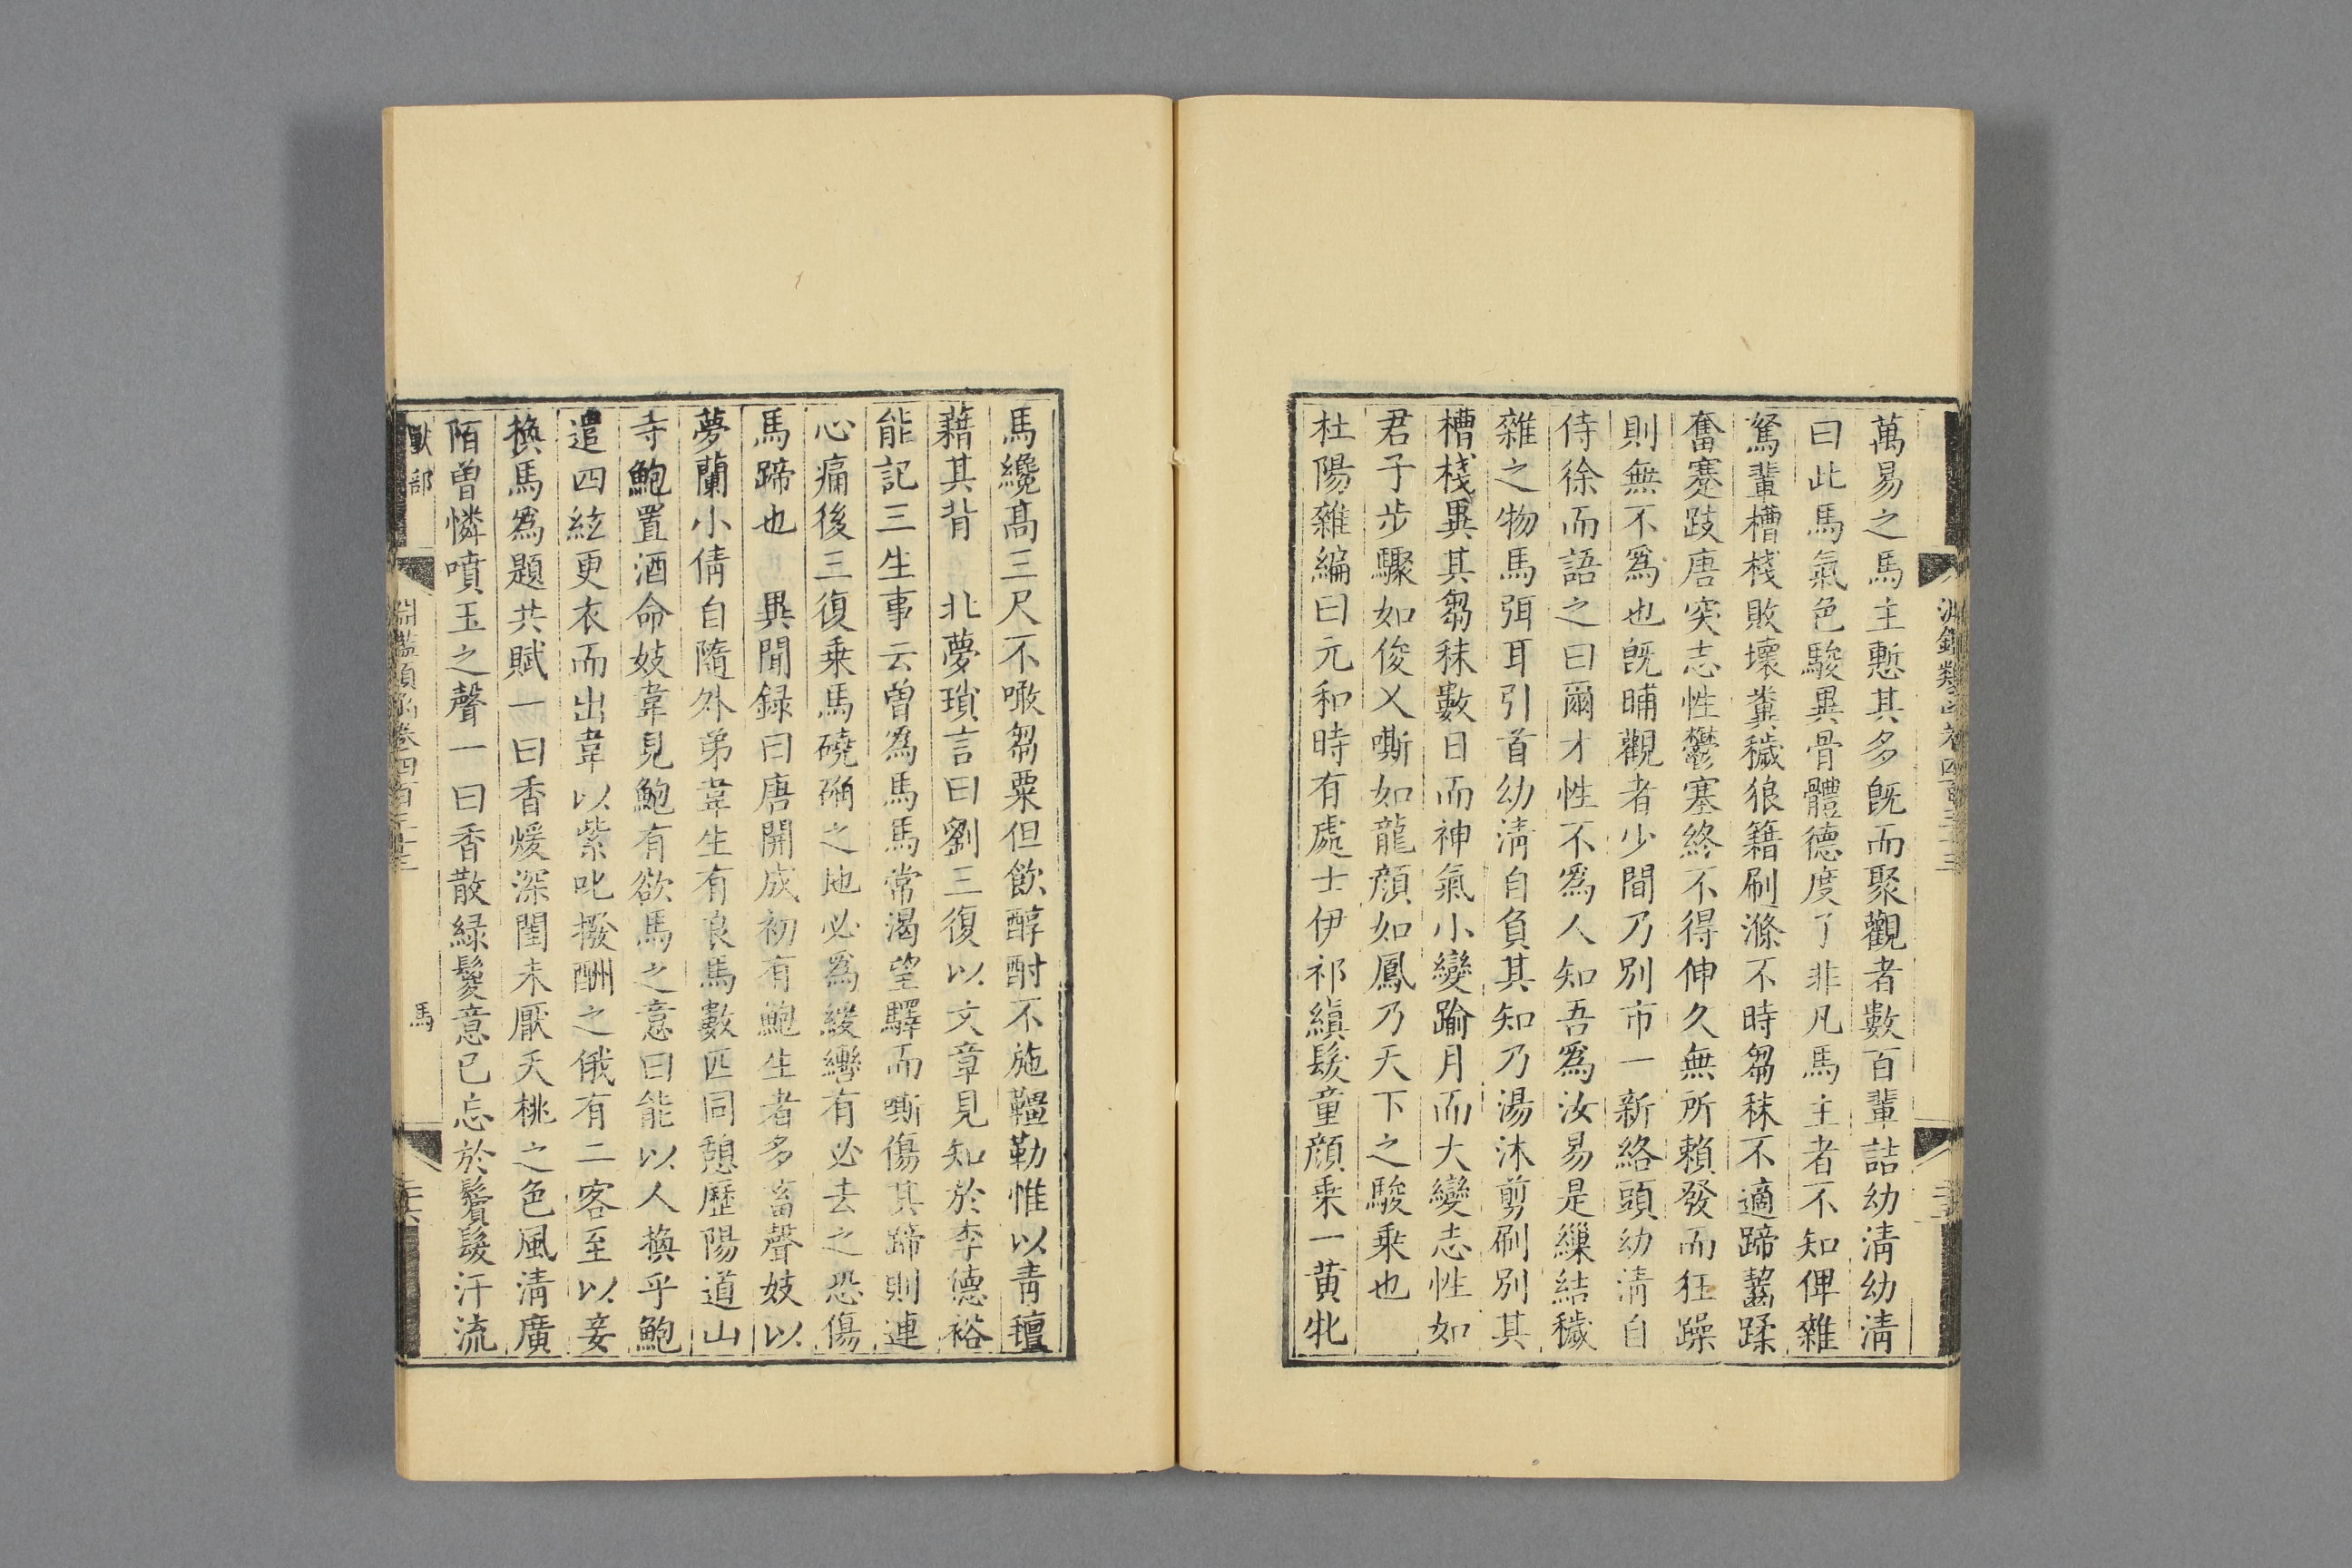 萬易之馬主慙其多旣而聚觀者數百輩詰幼淸幼淸
曰此馬氣色駿異骨體德度了非凡馬主者不知俾雜
駑輩槽棧敗壞糞穢狼籍刷滌不時芻秣不適蹄齧蹂
奮蹇跂唐突志性鬱塞終不得伸久無所賴發而狂躁
則無不爲也旣晡觀者少間乃別市一新絡頭幼淸自
侍徐而語之曰爾才性不爲人知吾爲汝易是纏結穢
雜之物馬弭耳引首幼淸自負其知乃湯沐剪刷別其
槽棧異其芻秣數日而神氣小變踰月而大變志性如
君子步驟如俊乂嘶如龍顔如鳳乃天下之駿乘也
杜陽雜編曰元和時有處士伊祁縝髮童顔乘一黄牝
馬纔髙三尺不噉芻粟但飲醇酎不施韁勒惟以靑氊
藉其背 北夢瑣言曰劉三復以文章見知於李德裕
能記三生事云曾爲馬馬常渴望驛而嘶傷其蹄則連
心痛後三復乗馬磽确之地必爲緩轡有必去之恐傷
馬蹄也 異聞録曰唐開成初有鮑生者多畜聲妓以
夢蘭小倩自隨外弟韋生有良馬數匹同憩歷陽道山
寺鮑置酒命妓韋見鮑有欲馬之意曰能以人換乎鮑
遣四絃更衣而出韋以紫叱撥酬之俄有二客至以妾
換馬爲題共賦一曰香煖深閨未厭夭桃之色風淸廣
陌曾憐噴玉之聲一曰香散緑鬟意已忘於鬢髮汗流
獸部 淵鑑類函卷四百三十三 馬